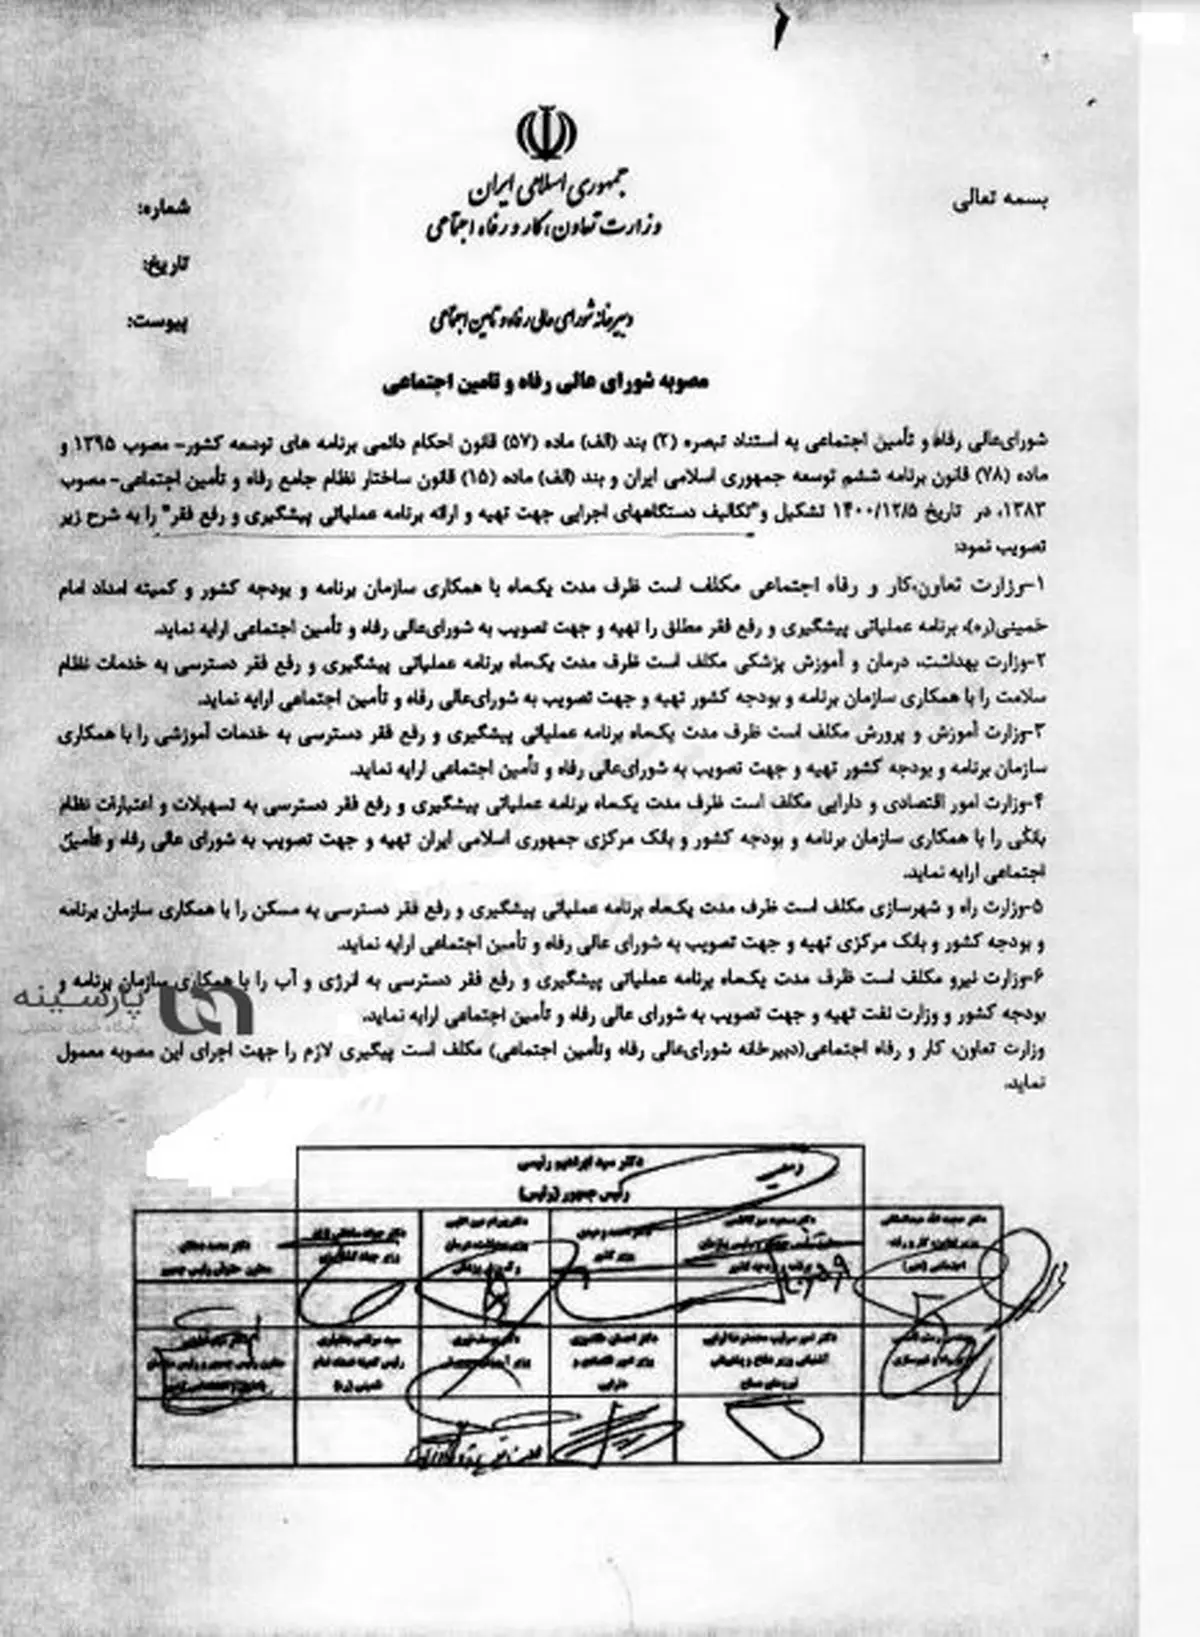 بسمه تعالی
جمهوری اسلامی ایران
وزارت تعاون، کار و رفاه اجتماعی
شماره:
تاریخ:
پیوست:
دبیرخانه شورای عالی رفاه و تامین اجتماعی
مصوبه شورای عالی رفاه و تامین اجتماعی
شورای‌عالی رفاه و تأمین اجتماعی به استناد تبصره (۲) بند (الف) ماده (۵۷) قانون احکام دائمی برنامه های توسعه کشور- مصوب ۱۳۹۵ و
ماده (۷۸) قانون برنامه ششم توسعه جمهوری اسلامی ایران و بند (الف) ماده (۱۵) قانون ساختار نظام جامع رفاه و تأمین اجتماعی- مصوب
۱۳۸۳، در تاریخ ۱۴۰۰/۱۲/۵ تشکیل و"تکالیف دستگاههای اجرایی جهت تهیه و ارائه برنامه عملیاتی پیشگیری و رفع فقر" را به شرح زیر
تصویب نمود:
۱-وزارت تعاون،کار و رفاه اجتماعی مکلف است ظرف مدت یک‌ماه با همکاری سازمان برنامه و بودجه کشور و کمیته امداد امام
خمینی(ره)، برنامه عملیاتی پیشگیری و رفع فقر مطلق را تهیه و جهت تصویب به شورای‌عالی رفاه و تأمین اجتماعی ارایه نماید.
۲-وزارت بهداشت، درمان و آموزش پزشکی مکلف است ظرف مدت یک‌ماه برنامه عملیاتی پیشگیری و رفع فقر دسترسی به خدمات نظام
سلامت را با همکاری سازمان برنامه و بودجه کشور تهیه و جهت تصویب به شورای‌عالی رفاه و تأمین اجتماعی ارایه نماید.
۳-وزارت آموزش و پرورش مکلف است ظرف مدت یک‌ماه برنامه عملیاتی پیشگیری و رفع فقر دسترسی به خدمات آموزشی را با همکاری
سازمان برنامه و بودجه کشور تهیه و جهت تصویب به شورای‌عالی رفاه و تأمین اجتماعی ارایه نماید.
۴-وزارت امور اقتصادی و دارایی مکلف است ظرف مدت یک‌ماه برنامه عملیاتی پیشگیری و رفع فقر دسترسی به تسهیلات و اعتبارات نظام
بانکی را با همکاری سازمان برنامه و بودجه کشور و بانک مرکزی جمهوری اسلامی ایران تهیه و جهت تصویب به شورای عالی رفاه و تأمین
اجتماعی ارایه نماید.
۵-وزارت راه و شهرسازی مکلف است ظرف مدت یک‌ماه برنامه عملیاتی پیشگیری و رفع فقر دسترسی به مسکن را با همکاری سازمان برنامه
و بودجه کشور و بانک مرکزی تهیه و جهت تصویب به شورای عالی رفاه و تأمین اجتماعی ارایه نماید.
۶-وزارت نیرو مکلف است ظرف مدت یک‌ماه برنامه عملیاتی پیشگیری و رفع فقر دسترسی به انرژی و آب را با همکاری سازمان برنامه و
بودجه کشور و وزارت نفت تهیه و جهت تصویب به شورای عالی رفاه و تأمین اجتماعی ارایه نماید.
وزارت تعاون، کار و رفاه اجتماعی(دبیرخانه شورای‌عالی رفاه وتأمین اجتماعی) مکلف است پیگیری لازم را جهت اجرای این مصوبه معمول
نماید.
پارسینه
پایگاه خبری تحلیلی
دکتر سید ابراهیم رئیسی
رئیس جمهور (رئیس)
دکتر حجت اله عبدالملکی
وزیر تعاون، کار و رفاه
اجتماعی (دبیر)
دکتر مسعود میرکاظمی
دکتر احمد وحیدی
وزیر کشور
دکتر بهرام عین اللهی
وزیر بهداشت، درمان
و آموزش پزشکی
دکتر محمد دهقان
معاون حقوقی رئیس جمهور
دکتر امیر سرتیپ محمدرضا قرایی
آشتیانی وزیر دفاع و پشتیبانی
نیروهای مسلح
دکتر احسان خاندوزی
وزیر امور اقتصادی و
دارایی
دکتر یوسف نوری
سید مرتضی بختیاری
رئیس کمیته امداد امام
خمینی (ره)